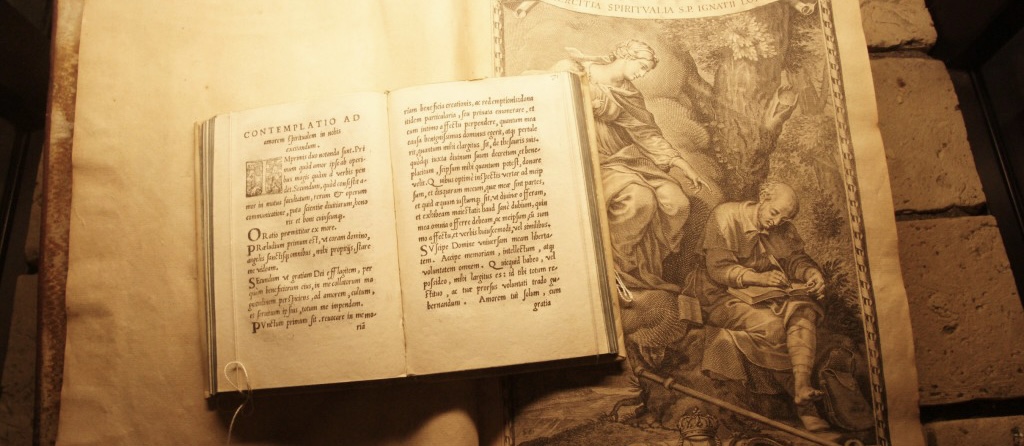 EXERCITIA SPIRITVALIA S.P. IGNATII LO
CONTEMPLATIO AD
amorem spiritualem in nobis
excitandum.
IMprimis duo notanda sunt. Pri
mum quidem amor ipse ab operi-
bus magis quàm à verbis pen
det. Secundum, quòd consistit a-
mor in mutua facultatum, rerum & operum
communicatione, puta scientiæ diuitiarum, hono
ris et boni cuiusuis.
ORatio præmittitur ex more.
PRæludium primum est, vt coram domino,
angelis sanctisq́ omnibus, mihi propitijs, stare
me videam.
SEcundum vt gratiam Dei efflagitem, per
quam beneficiorum eius, in me collatorum ma
gnitudinem perspiciens, ad amorem, cultum,
et seruitium ipsius, totum me impendam.
PVnctum primum sit, reuocare in memo-
riã
riam beneficia creationis, ac redemptionis: dona
itidem particularia, seu priuata enumerare, et
cum intimo affectu perpendere, quantum mea
causa benignissimus dominus egerit, atq́ pertule
rit, quantum mihi clargitus sit, de thesauris suis:
quodq́ iuxta diuinum suum decretum, et bene-
placitum, seipsum mihi quantum potest, donare
velit. Quibus optimè inspectis vertar ad meip
sum, et disquiram mecum, quæ mea sint partes,
et quid æquum ac iustum sit, vt diuinæ offeram,
et exhibeam maiestati: haud sanè dubium, quin
mea omnia offerre debeam, ac meipsum, cũ sum
mo affectu, et verbis huiuscemodi, vel similibus,
SVscipe Domine vniuersam meam liberta-
tem. Accipe memoriam, intellectum, atq́
voluntatem omnem. Quicquid habeo, vel
possideo, mihi largitus es: id tibi totum re-
stituo, ac tuæ prorsus voluntati trado gu-
bernandum. Amorem tui solum, cum
gratia